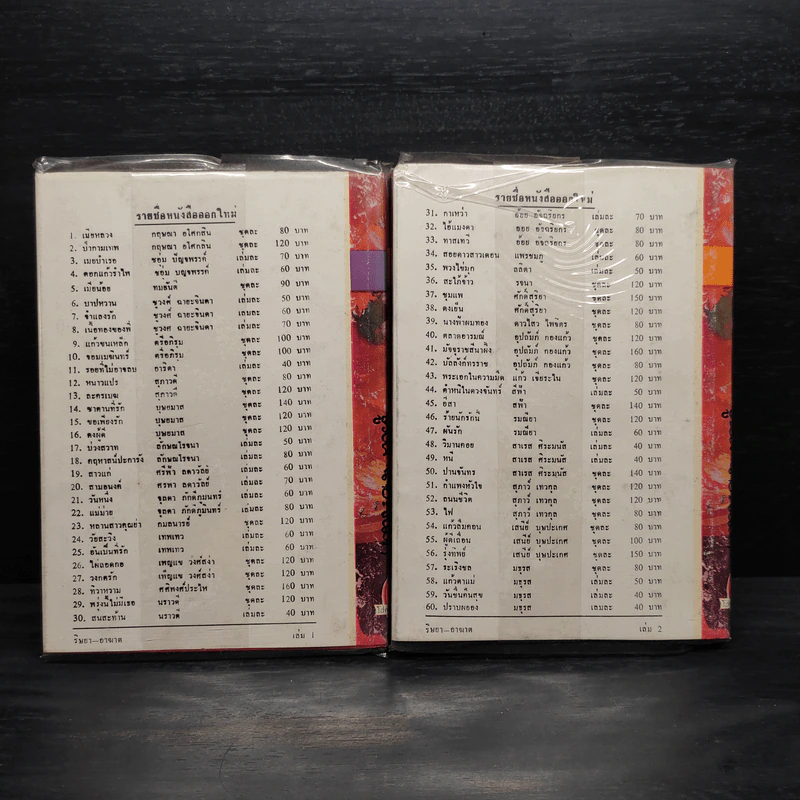 รายชื่อหนังสือออกใหม่
1. เมียหลวง กฤษณา อโศกสิน ชุดละ 80 บาท
2. ป่ากามเทพ กฤษณา อโศกสิน ชุดละ 120 บาท
3. เมยบำเรอ ชอุ่ม ปัญจพรรค์ เล่มละ 70 บาท
4. ดอกแก้วรำไพ ชอุ่ม ปัญจพรรค์ เล่มละ 60 บาท
5. เมียน้อย ทมยันตี ชุดละ 90 บาท
6. บาปหวาน ชูวงศ์ ฉายะจินดา เล่มละ 50 บาท
7. จำเลยรัก ชูวงศ์ ฉายะจินดา เล่มละ 60 บาท
8. เนื้อทองของพี่ ชูวงศ์ ฉายะจินดา เล่มละ 70 บาท
9. แก้วขนเหล็ก ตรีอภิรุม ชุดละ 100 บาท
10. จอมเมฆินทร์ ตรีอภิรุม ชุดละ 100 บาท
11. รอยที่ไม่อาจลบ อาริตา เล่มละ 40 บาท
12. หนาวแปร สุภาวดี ชุดละ 80 บาท
13. ละครเมฆ สุภาวดี ชุดละ 120 บาท
14. ซาตานที่รัก บุษยมาส ชุดละ 140 บาท
15. ขอเพียงรัก บุษยมาส ชุดละ 120 บาท
16. ดงผู้ดี บุษยมาส ชุดละ 120 บาท
17. บ่วงสวาท ลักษณโรจนา เล่มละ 50 บาท
18. คฤหาสน์ปะการัง ลักษณโรจนา ชุดละ 80 บาท
19. สาวแก่ ศรีฟ้า ลดาวัลย์ เล่มละ 60 บาท
20. สามอนงค์ ศรฟา ลดาวัลย์ เล่มละ 70 บาท
21. วันหนึ่ง จุลดา ภักดีภูมินทร์ เล่มละ 60 บาท
22. แม่ม่าย จุลดา ภักดีภูมินทร์ ชุดละ 80 บาท
23. หลานสาวคุณย่า กมลนารย์ ชุดละ 120 บาท
24. วัยสะวิง เทพเทวา เล่มละ 60 บาท
25. อันเป็นที่รัก เทพเทวา เล่มละ 60 บาท
26. ไผ่ลอดกอ เพ็ญแข วงศ์สง่า ชุดละ 120 บาท
27. วงกตรัก เพ็ญแข วงศ์สง่า ชุดละ 120 บาท
28. ทิวาหวาม ศศิพงศ์ประไพ ชุดละ 160 บาท
29. พรุ่งนี้ไม่มีเธอ นราวดี ชุดละ 120 บาท
30. สนสะท้าน นราวดี เล่มละ 40 บาท
ริษยา—อาฆาต เล่ม 1
รายชื่อหนังสือออกใหม่
31. กาเหว่า อ้อย อัจฉริยกร เล่มละ 70 บาท
32. ใยแมงดา อ้อย อัจฉริยกร ชุดละ 80 บาท
33. ทาสเทวี อ้อย อัจฉริยกร ชุดละ 80 บาท
34. สอยดาวสาวเดือน แพรชมภู เล่มละ 60 บาท
35. พวงไข่มุก ลลิตา เล่มละ 50 บาท
36. สะใภ้จ้าว รจนา ชุดละ 120 บาท
37. ชุมแพ ศักดิ์สุริยา ชุดละ 160 บาท
38. ดงเย็น ศักดิ์สุริยา ชุดละ 120 บาท
39. นางฟ้าผมทอง ดาวใสว ไพจิตร ชุดละ 80 บาท
40. ตลาดอารมณ์ อุปถัมภ์ กองแก้ว ชุดละ 120 บาท
41. มัจจุราชสีน้ำผึ้ง อุปถัมภ์ กองแก้ว ชุดละ 160 บาท
42. บัลลังก์ทรราช อุปถัมภ์ กองแก้ว ชุดละ 80 บาท
43. พระเอกในความมืด แก้ว เจียระใน ชุดละ 120 บาท
44. ตำหนิในดวงจันทร์ สีฟ้า เล่มละ 50 บาท
45. อีสา สีฟ้า ชุดละ 140 บาท
46. ร้ายนักรักนี้ รมณียา ชุดละ 120 บาท
47. ฝันรัก รมณียา เล่มละ 60 บาท
48. วิมานคอย สาเรส ศิระมนัส เล่มละ 40 บาท
49. หนี้ สาเรส ศิระมนัส เล่มละ 40 บาท
50. ปานขันทร สาเรส ศิระมนัส ชุดละ 140 บาท
51. กำแพงหัวใจ สุภาว์ เทวกุล ชุดละ 120 บาท
52. ถนนชีวิต สุภาว์ เทวกุล ชุดละ 120 บาท
53. ไฟ สุภาว์ เทวกุล ชุดละ 80 บาท
54. แก้วลืมคอน เสนีย์ บุษปะเกศ ชุดละ 80 บาท
55. ผู้ดีเถื่อน เสนีย์ บุษปะเกศ ชุดละ 100 บาท
56. รุ้งทิพย์ เสนีย์ บุษปะเกศ ชุดละ 150 บาท
57. ระเริงชล มธุรส ชุดละ 80 บาท
58. แก้วตาแม่ มธุรส เล่มละ 50 บาท
59. วันชื่นคืนสุข มธุรส เล่มละ 40 บาท
60. ปราบพยอง มธุรส เล่มละ 40 บาท
ริษยา—อาฆาต เล่ม 2